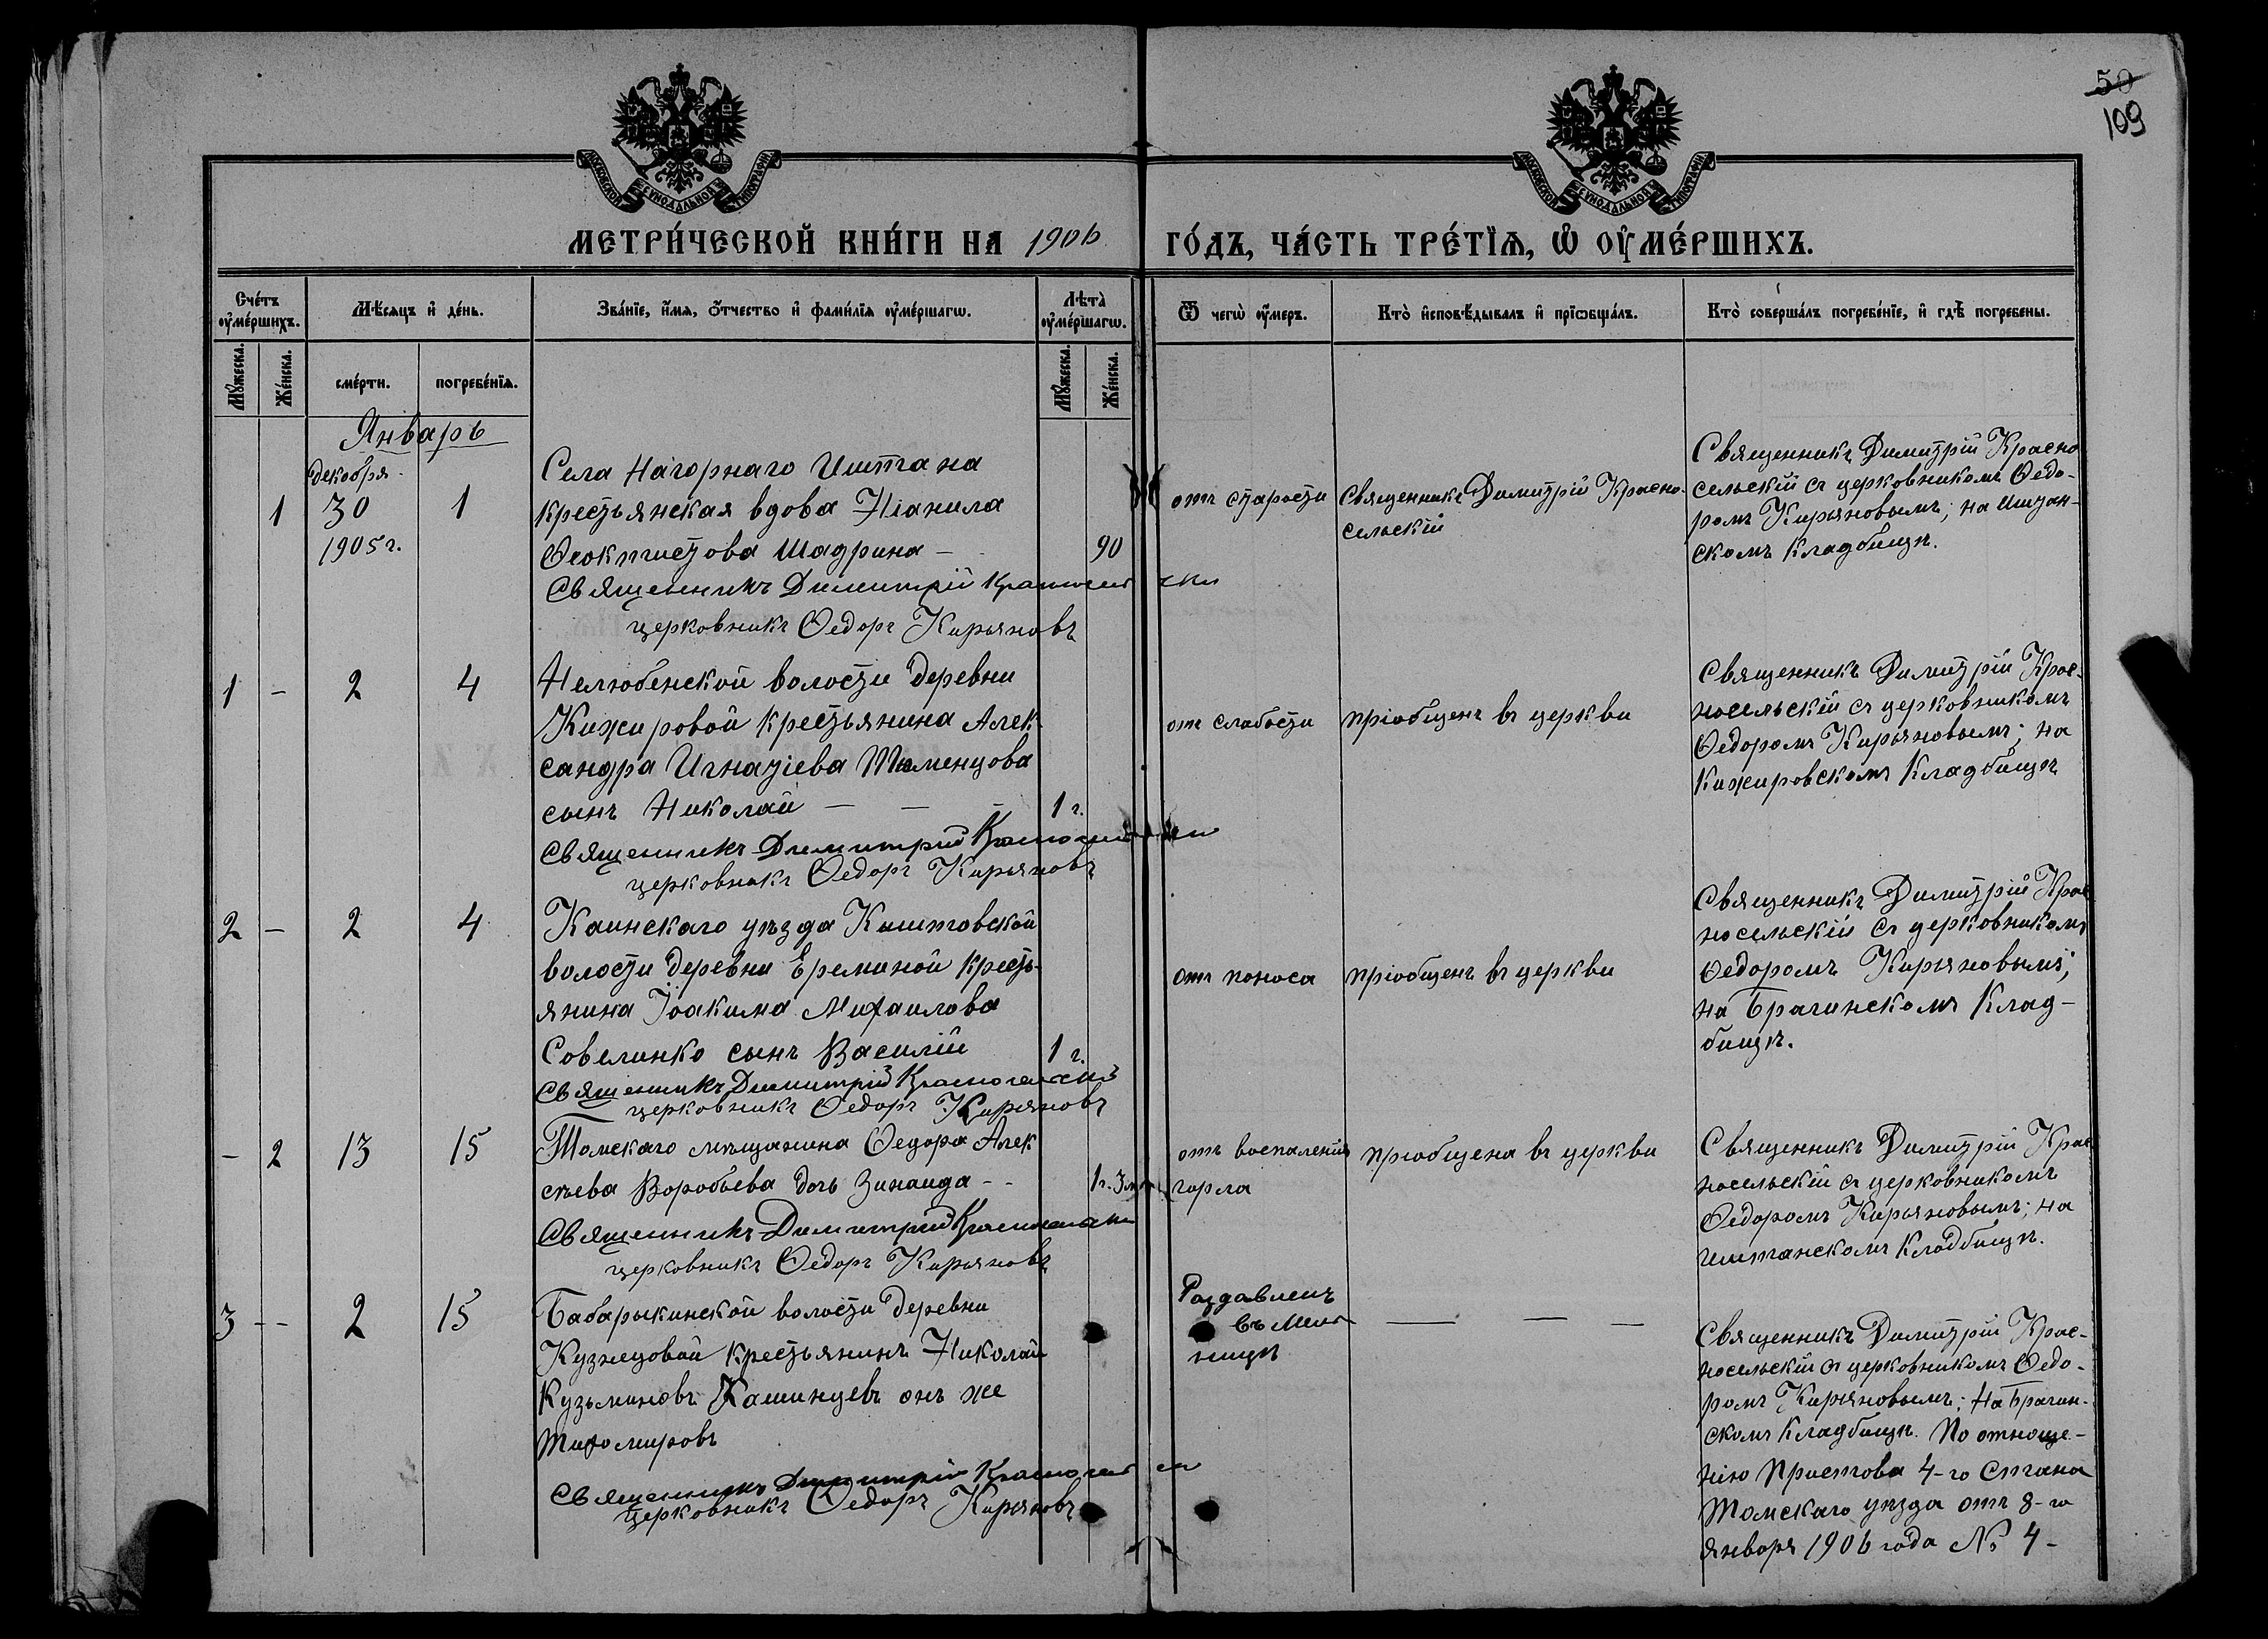 50
109
МОСКОВСКОЙ СѴНОДАЛЬНОЙ ТИПОГРАФІИ
МОСКОВСКОЙ СѴНОДАЛЬНОЙ ТИПОГРАФІИ
МЕТРИ́ЧЕСКОЙ КНИ́ГИ НА 1906 ГО́ДЪ, ЧА́СТЬ ТРЕ́ТЇѦ, Ѡ҆ ОУ҆МЕ́РШИХЪ.
Сче́тъ оу҆ме́ршихъ.
Мѣ́сяцъ и҆ де́нь.
Зва́нїе, и҆́мя, ѻ҆́тчество и҆ фами́лїя оу҆ме́ршагѡ.
Лѣта̀ оу҆ме́ршагѡ.
Ѿ чегѡ̀ оу҆́меръ.
Кто̀ и҆сповѣ́дывалъ и҆ прїѡбща́лъ.
Кто̀ соверша́лъ погребе́нїе, и҆ гдѣ̀ погребены.
Мꙋ́жеска.
Же́нска.
сме́рти.
погребе́нїя.
Мꙋ́жеска.
Же́нска.
Январь
декабря
1 30 1
1905 г.
Села Нагорнаго Иштана
крестьянская вдова Неанила
Феоктистова Шадрина — 90
Священникъ Димитрій Красносельскій
церковникъ Ѳедоръ Кирьяновъ
отъ старости
Священникъ Димитрій Красно-
сельскій
Священникъ Димитрій Красно
сельскій съ церковникомъ Ѳедо-
ромъ Кирьяновымъ; на Иштан-
скомъ Кладбищѣ.
1 — 2 4
Нелюбенской волости деревни
Кижировой крестьянина Алек
сандра Игнатіева Тюменцова
сынъ Николай — — — 1 г.
Священникъ Димитрій Красносельскій
церковникъ Ѳедоръ Кирьяновъ
отъ слабости
пріобщенъ въ церкви
Священникъ Димитрій Крас-
носельскій съ церковникомъ
Ѳедоромъ Кирьяновымъ; на
Кижировскомъ Кладбищѣ
2 — 2 4
Каинскаго уѣзда Кыштовской
волости деревни Ереминой кресть-
янина Іоакима Михаилова
Совелинко сынъ Василій 1 г.
Священникъ Димитрій Красносельскій
церковникъ Ѳедоръ Кирьяновъ
отъ поноса
пріобщенъ въ церкви
Священникъ Димитрій Крас
носельскій съ церковникомъ
Ѳедоромъ Кирьяновымъ;
на Брагинскомъ Клад-
бищѣ.
— 2 13 15
Томскаго мѣщанина Ѳедора Алек
сѣева Воробьева дочь Зинаида - - 1 г. 3 м.
Священникъ Димитрій Красносельскій
церковникъ Ѳедоръ Кирьяновъ
отъ воспаленія
горла
пріобщена въ церкви
Священникъ Димитрій Крас
носельскій съ церковникомъ
Ѳедоромъ Кирьяновымъ; на
Иштанскомъ Кладбищѣ.
3 -- 2 15
Бабарыкинской волости деревни
Кузнецовой крестьянинъ Николай
Кузьминовъ Камнцевъ онъ же
Тихомировъ
Священникъ Димитрій Красносельскій
церковникъ Ѳедоръ Кирьяновъ
Раздавленъ
въ мель
ницѣ
— — —
Священникъ Димитрій Крас-
носельскій съ церковникомъ Ѳедо-
ромъ Кирьяновымъ; на Брагин-
скомъ Кладбищѣ. По отноше-
нію Пристава 4-го Стана
Томскаго уѣзда отъ 8-го
января 1906 года № 4 -